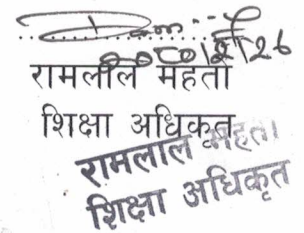 रामलाल महतो
शिक्षा अधिकृत
रामलाल महतो
शिक्षा अधिकृत